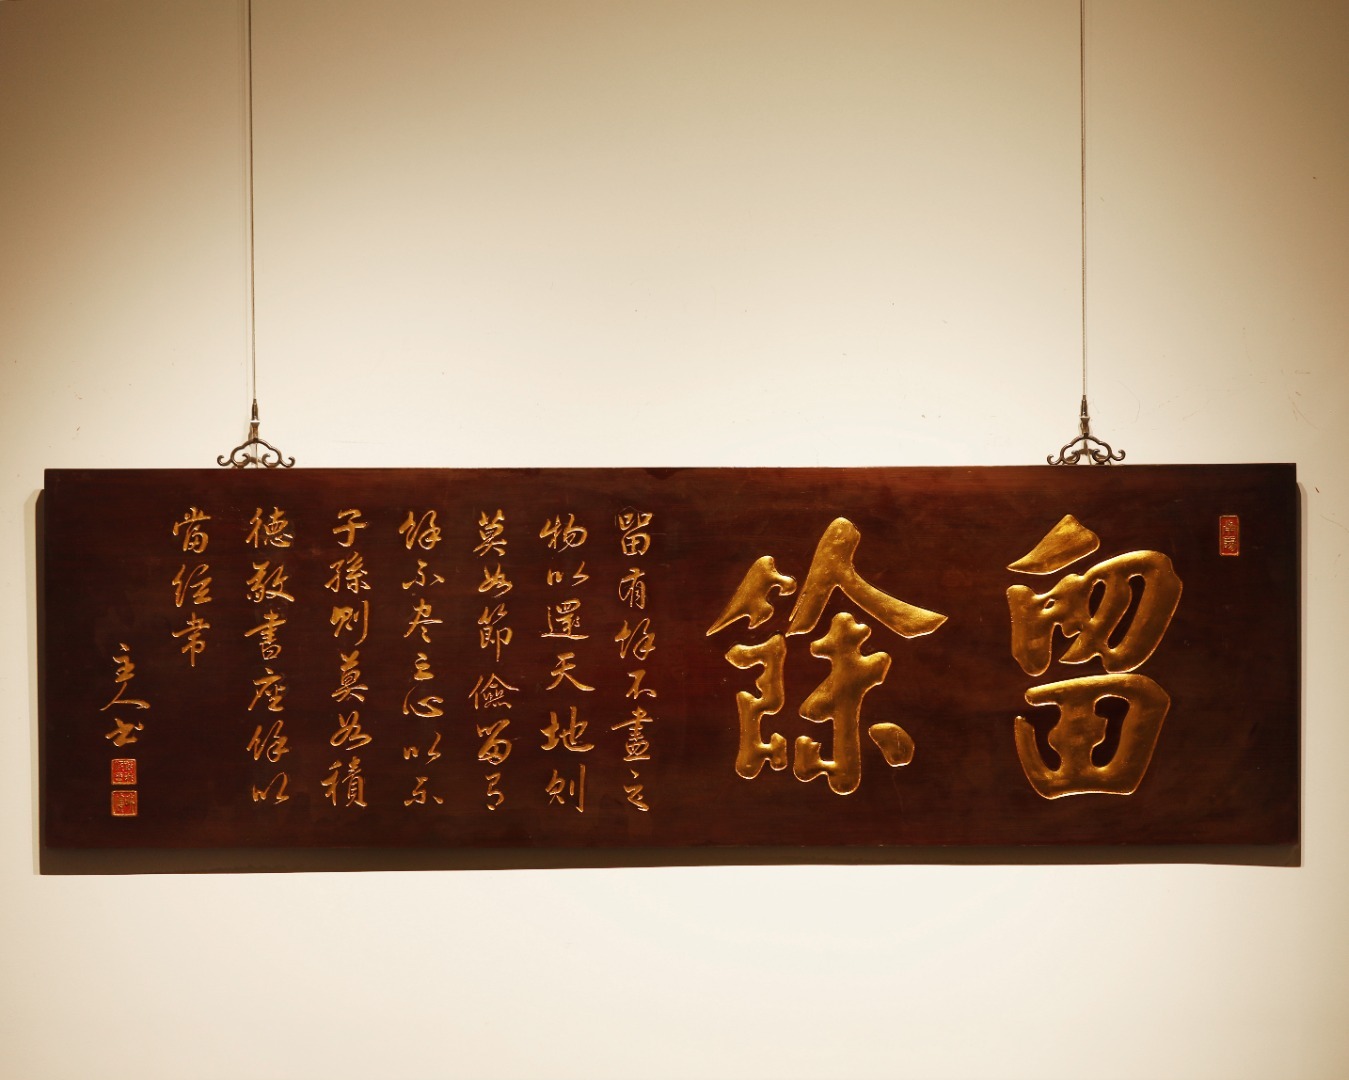 留餘
留有餘不盡之
物以還天地則
莫如節儉留有
餘不尽之心以示
子孫則莫如積
德敬書座餘以
當經常
主人書